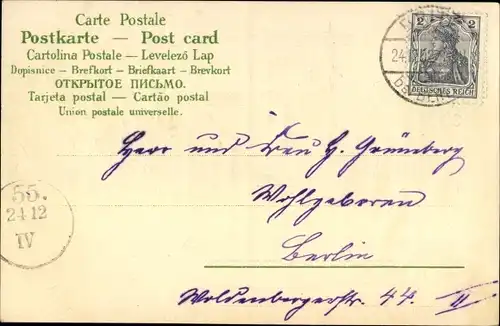 Carte Postale
Postkarte — Post card
Cartolina Postale — Levelező Lap
Dopisnice — Brefkort — Briefkaart — Brevkort
ОТКРЫТОЕ ПИСЬМО.
Tarjeta postal — Cartão postal
Union postale universelle.
2 2
DEUTSCHES REICH
Herr und Frau H. Grünberg
Wohlgeboren
Berlin
Woldenbergerstr. 44. II
55.
24 12
IV